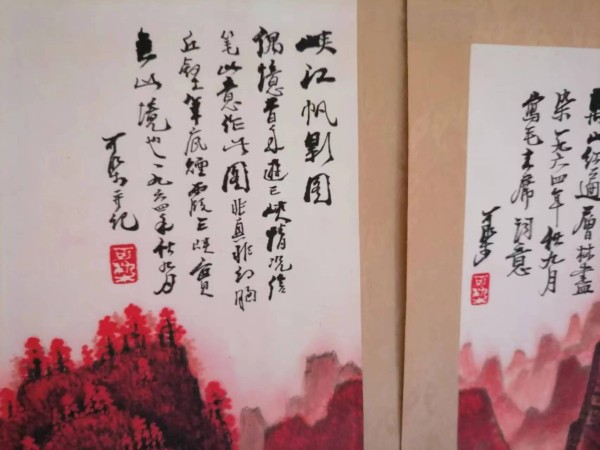 峡江帆影图
偶忆昔年游三峡情况信
笔以意作此图非真非幻胸
丘壑笔底烟霞三峡实
无此境也一九六四年秋九月
可染并记
可染
万山红遍层林尽
染一九六四年秋九月
写毛主席词意
可染
可染